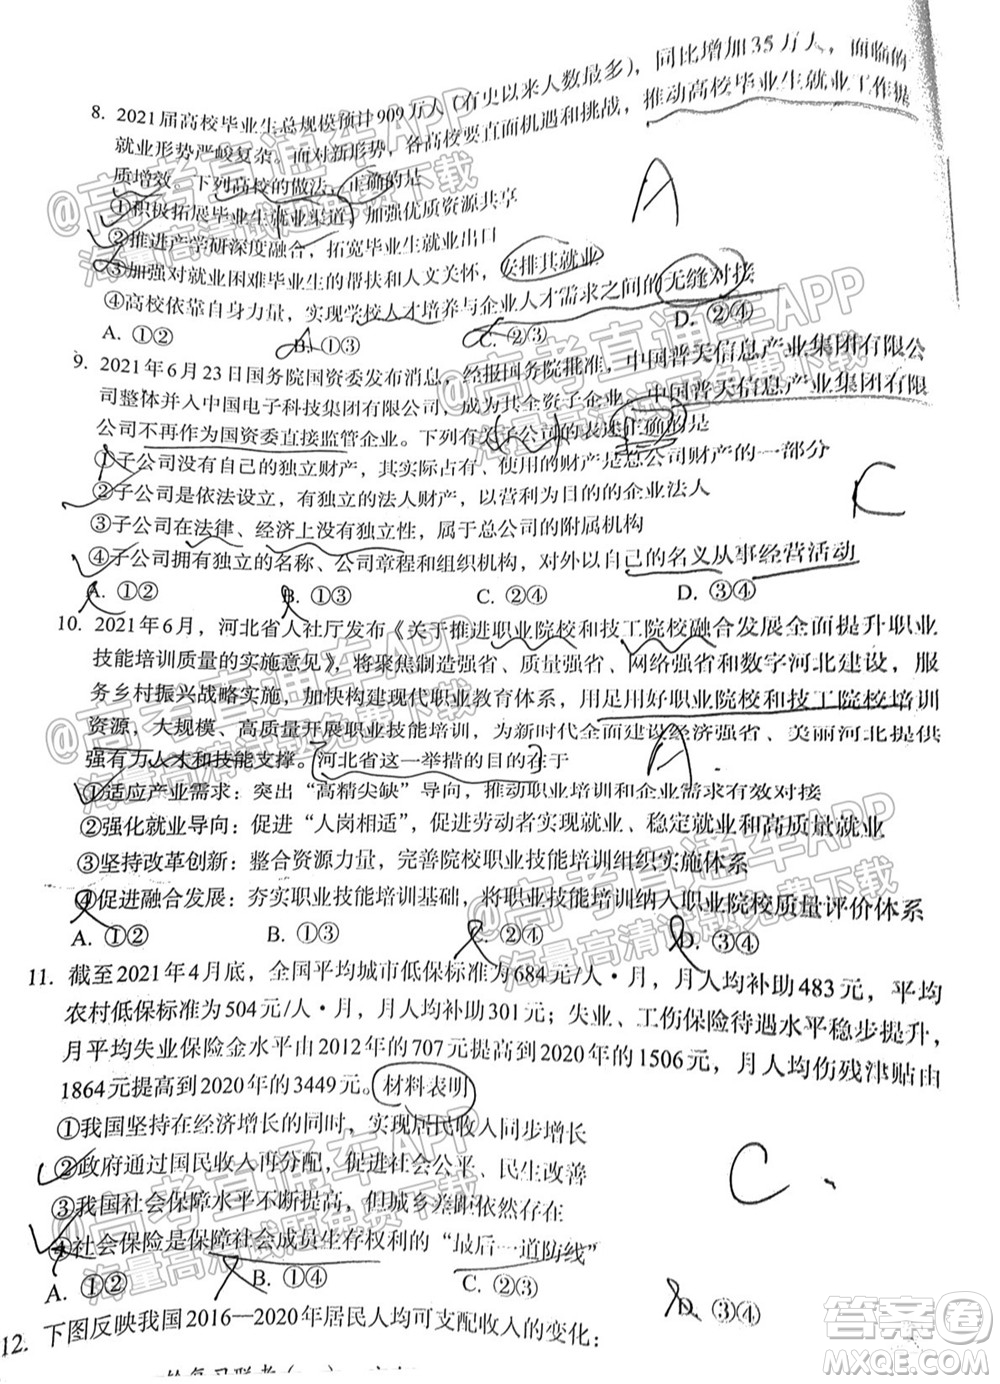 8. 2021届高校毕业生总规模预计909万人（有史以来人数最多），同比增加35万人，面临的
就业形势严峻复杂。面对新形势，各高校要直面机遇和挑战，推动高校毕业生就业工作提
质增效。下列高校的做法，正确的是
①积极拓展毕业生就业渠道，加强优质资源共享
②推进产学研深度融合，拓宽毕业生就业出口
③加强对就业困难毕业生的帮扶和人文关怀，安排其就业
④高校依靠自身力量，实现学校人才培养与企业人才需求之间的无缝对接
A. ①② B. ①③ C. ②③ D. ②④
A
9. 2021年6月23日国务院国资委发布消息，经报国务院批准，中国普天信息产业集团有限公
司整体并入中国电子科技集团有限公司，成为其全资子企业，中国普天信息产业集团有限
公司不再作为国资委直接监管企业。下列有关子公司的表述正确的是
①子公司没有自己的独立财产，其实际占有、使用的财产是总公司财产的一部分
②子公司是依法设立，有独立的法人财产，以营利为目的的企业法人
③子公司在法律、经济上没有独立性，属于总公司的附属机构
④子公司拥有独立的名称、公司章程和组织机构，对外以自己的名义从事经营活动
A. ①② B. ①③ C. ②④ D. ③④
C
10. 2021年6月，河北省人社厅发布《关于推进职业院校和技工院校融合发展全面提升职业
技能培训质量的实施意见》，将聚焦制造强省、质量强省、网络强省和数字河北建设，服
务乡村振兴战略实施，加快构建现代职业教育体系，用足用好职业院校和技工院校培训
资源，大规模、高质量开展职业技能培训，为新时代全面建设经济强省、美丽河北提供
强有力人才和技能支撑。河北省这一举措的目的在于
①适应产业需求：突出“高精尖缺”导向，推动职业培训和企业需求有效对接
②强化就业导向：促进“人岗相适”，促进劳动者实现就业、稳定就业和高质量就业
③坚持改革创新：整合资源力量，完善院校职业技能培训组织实施体系
④促进融合发展：夯实职业技能培训基础，将职业技能培训纳入职业院校质量评价体系
A. ①② B. ①③ C. ②④ D. ③④
A
11. 截至2021年4月底，全国平均城市低保标准为684元/人·月，月人均补助483元，平均
农村低保标准为504元/人·月，月人均补助301元；失业、工伤保险待遇水平稳步提升，
月平均失业保险金水平由2012年的707元提高到2020年的1506元，月人均伤残津贴由
1864元提高到2020年的3449元。材料表明
①我国坚持在经济增长的同时，实现居民收入同步增长
②政府通过国民收入再分配，促进社会公平、民生改善
③我国社会保障水平不断提高，但城乡差距依然存在
④社会保险是保障社会成员生存权利的“最后一道防线”
A. ①② B. ①④ C. ②③ D. ③④
C
12. 下图反映我国2016—2020年居民人均可支配收入的变化：
@高考直通车APP
海量高清试题免费下载
答案圈
MXQE.COM